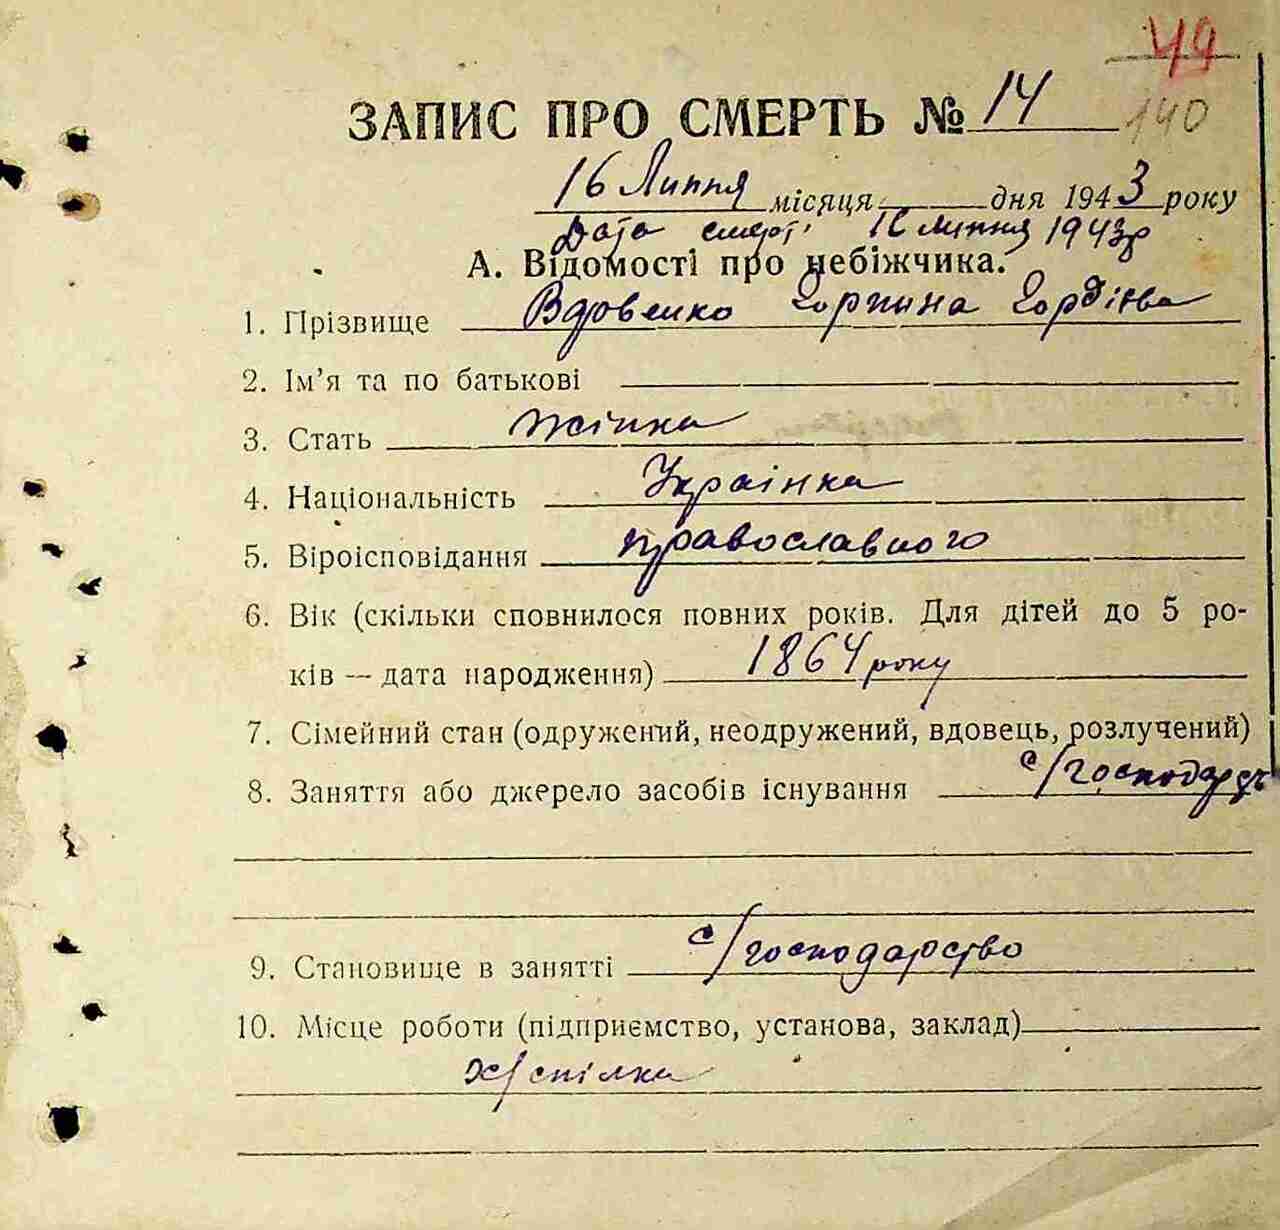 49
ЗАПИС ПРО СМЕРТЬ № 14 140
16 Липня місяця дня 1943 року
Дата смерт. 16 липня 1943р
А. Відомості про небіжчика.
1. Прізвище Вдовенко Горпина Гордієва
2. Ім'я та по батькові
3. Стать жінка
4. Національність Українка
5. Віроісповідання православного
6. Вік (скільки сповнилося повних років. Для дітей до 5 ро-
ків — дата народження) 1864 року
7. Сімейний стан (одружений, неодружений, вдовець, розлучений)
8. Заняття або джерело засобів існування с/господар
9. Становище в занятті с/господарство
10. Місце роботи (підприємство, установа, заклад)
х/спілка